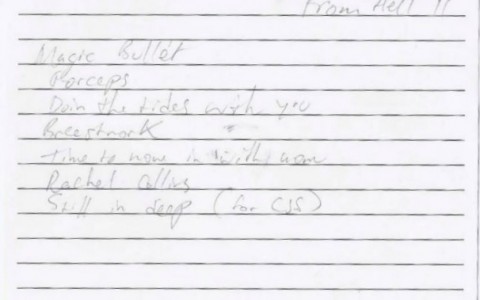 From Hell II
Magic Bullet
Porceps
Doin the tides with you
Breastmork
time to now in with
Rachel Collins
Still in deep (for CSS)